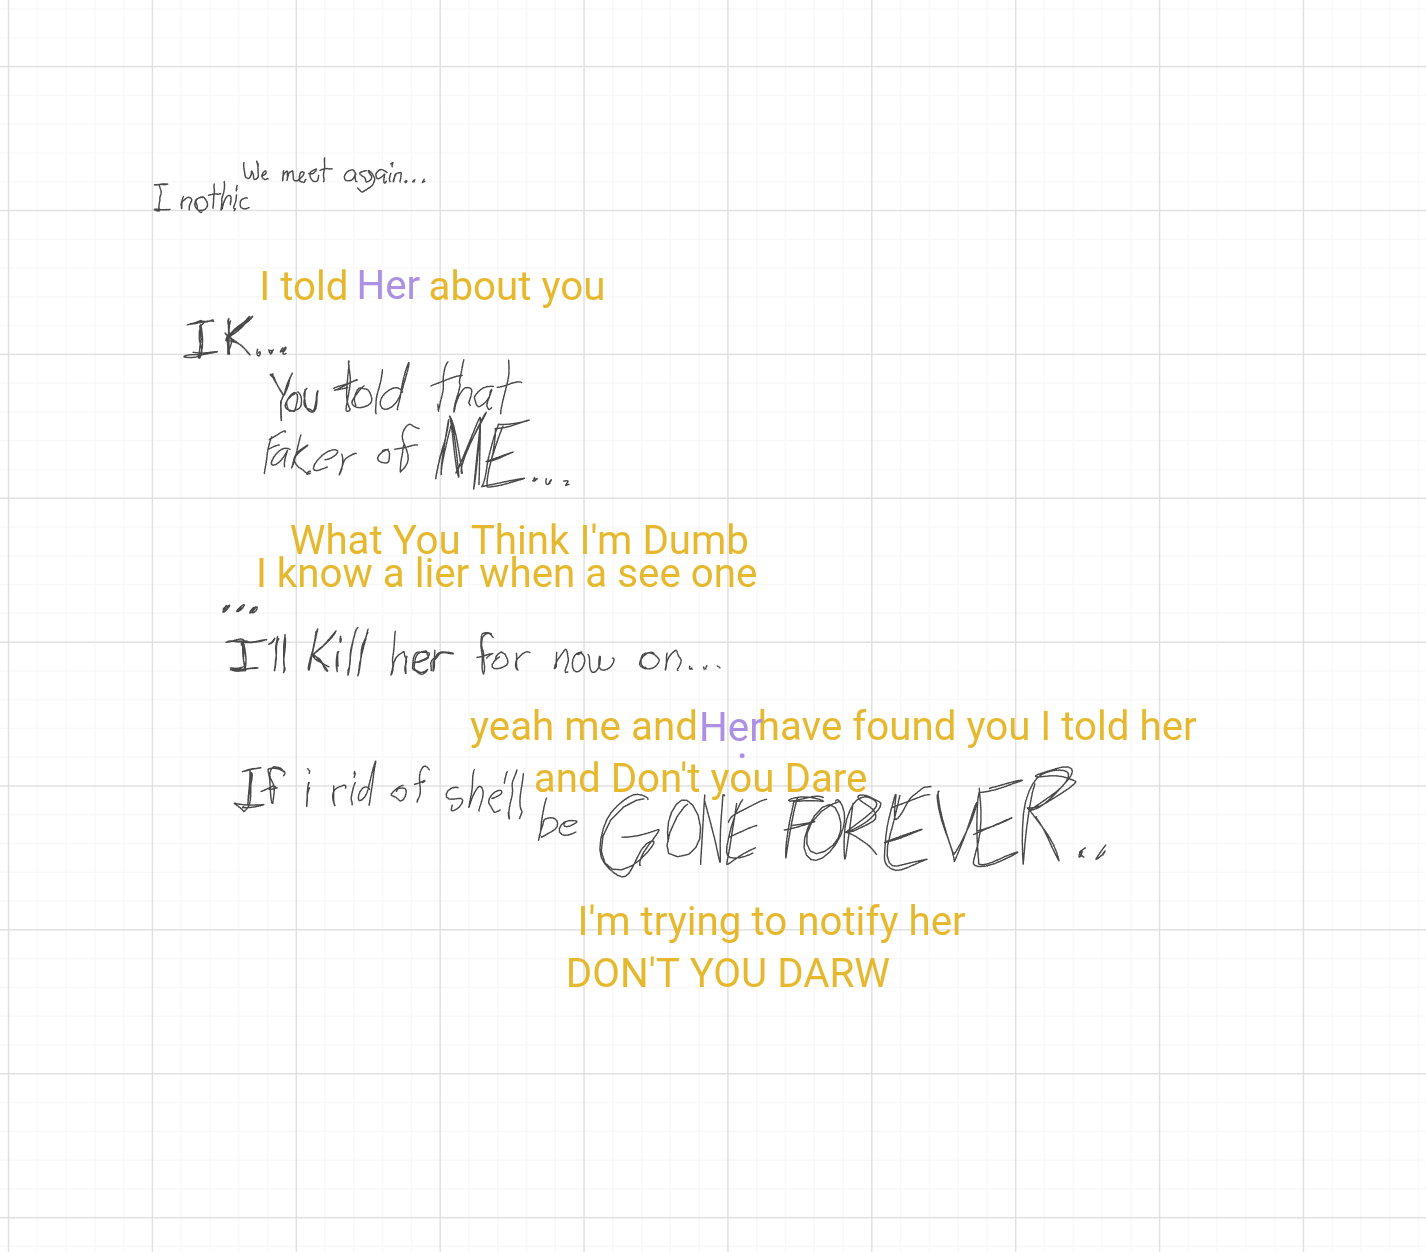 We meet again...
I nothic
I told Her about you
IK...
You told that
Faker of ME...
What You Think I'm Dumb
I know a lier when a see one
...
I'll Kill her for now on...
yeah me and Her have found you I told her
and Don't you Dare
If i rid of she'll be GONE FOREVER...
I'm trying to notify her
DON'T YOU DARW